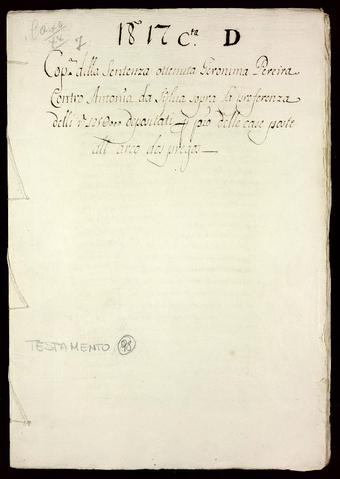 18 17 Cta D
Copa della Sentenza ottenuta Geronima Pereira
Contro Antonia da Sylva sopra la preferenza
delli depositati pio delle case poste
all' arco dos pregos
TESTAMENTO 98